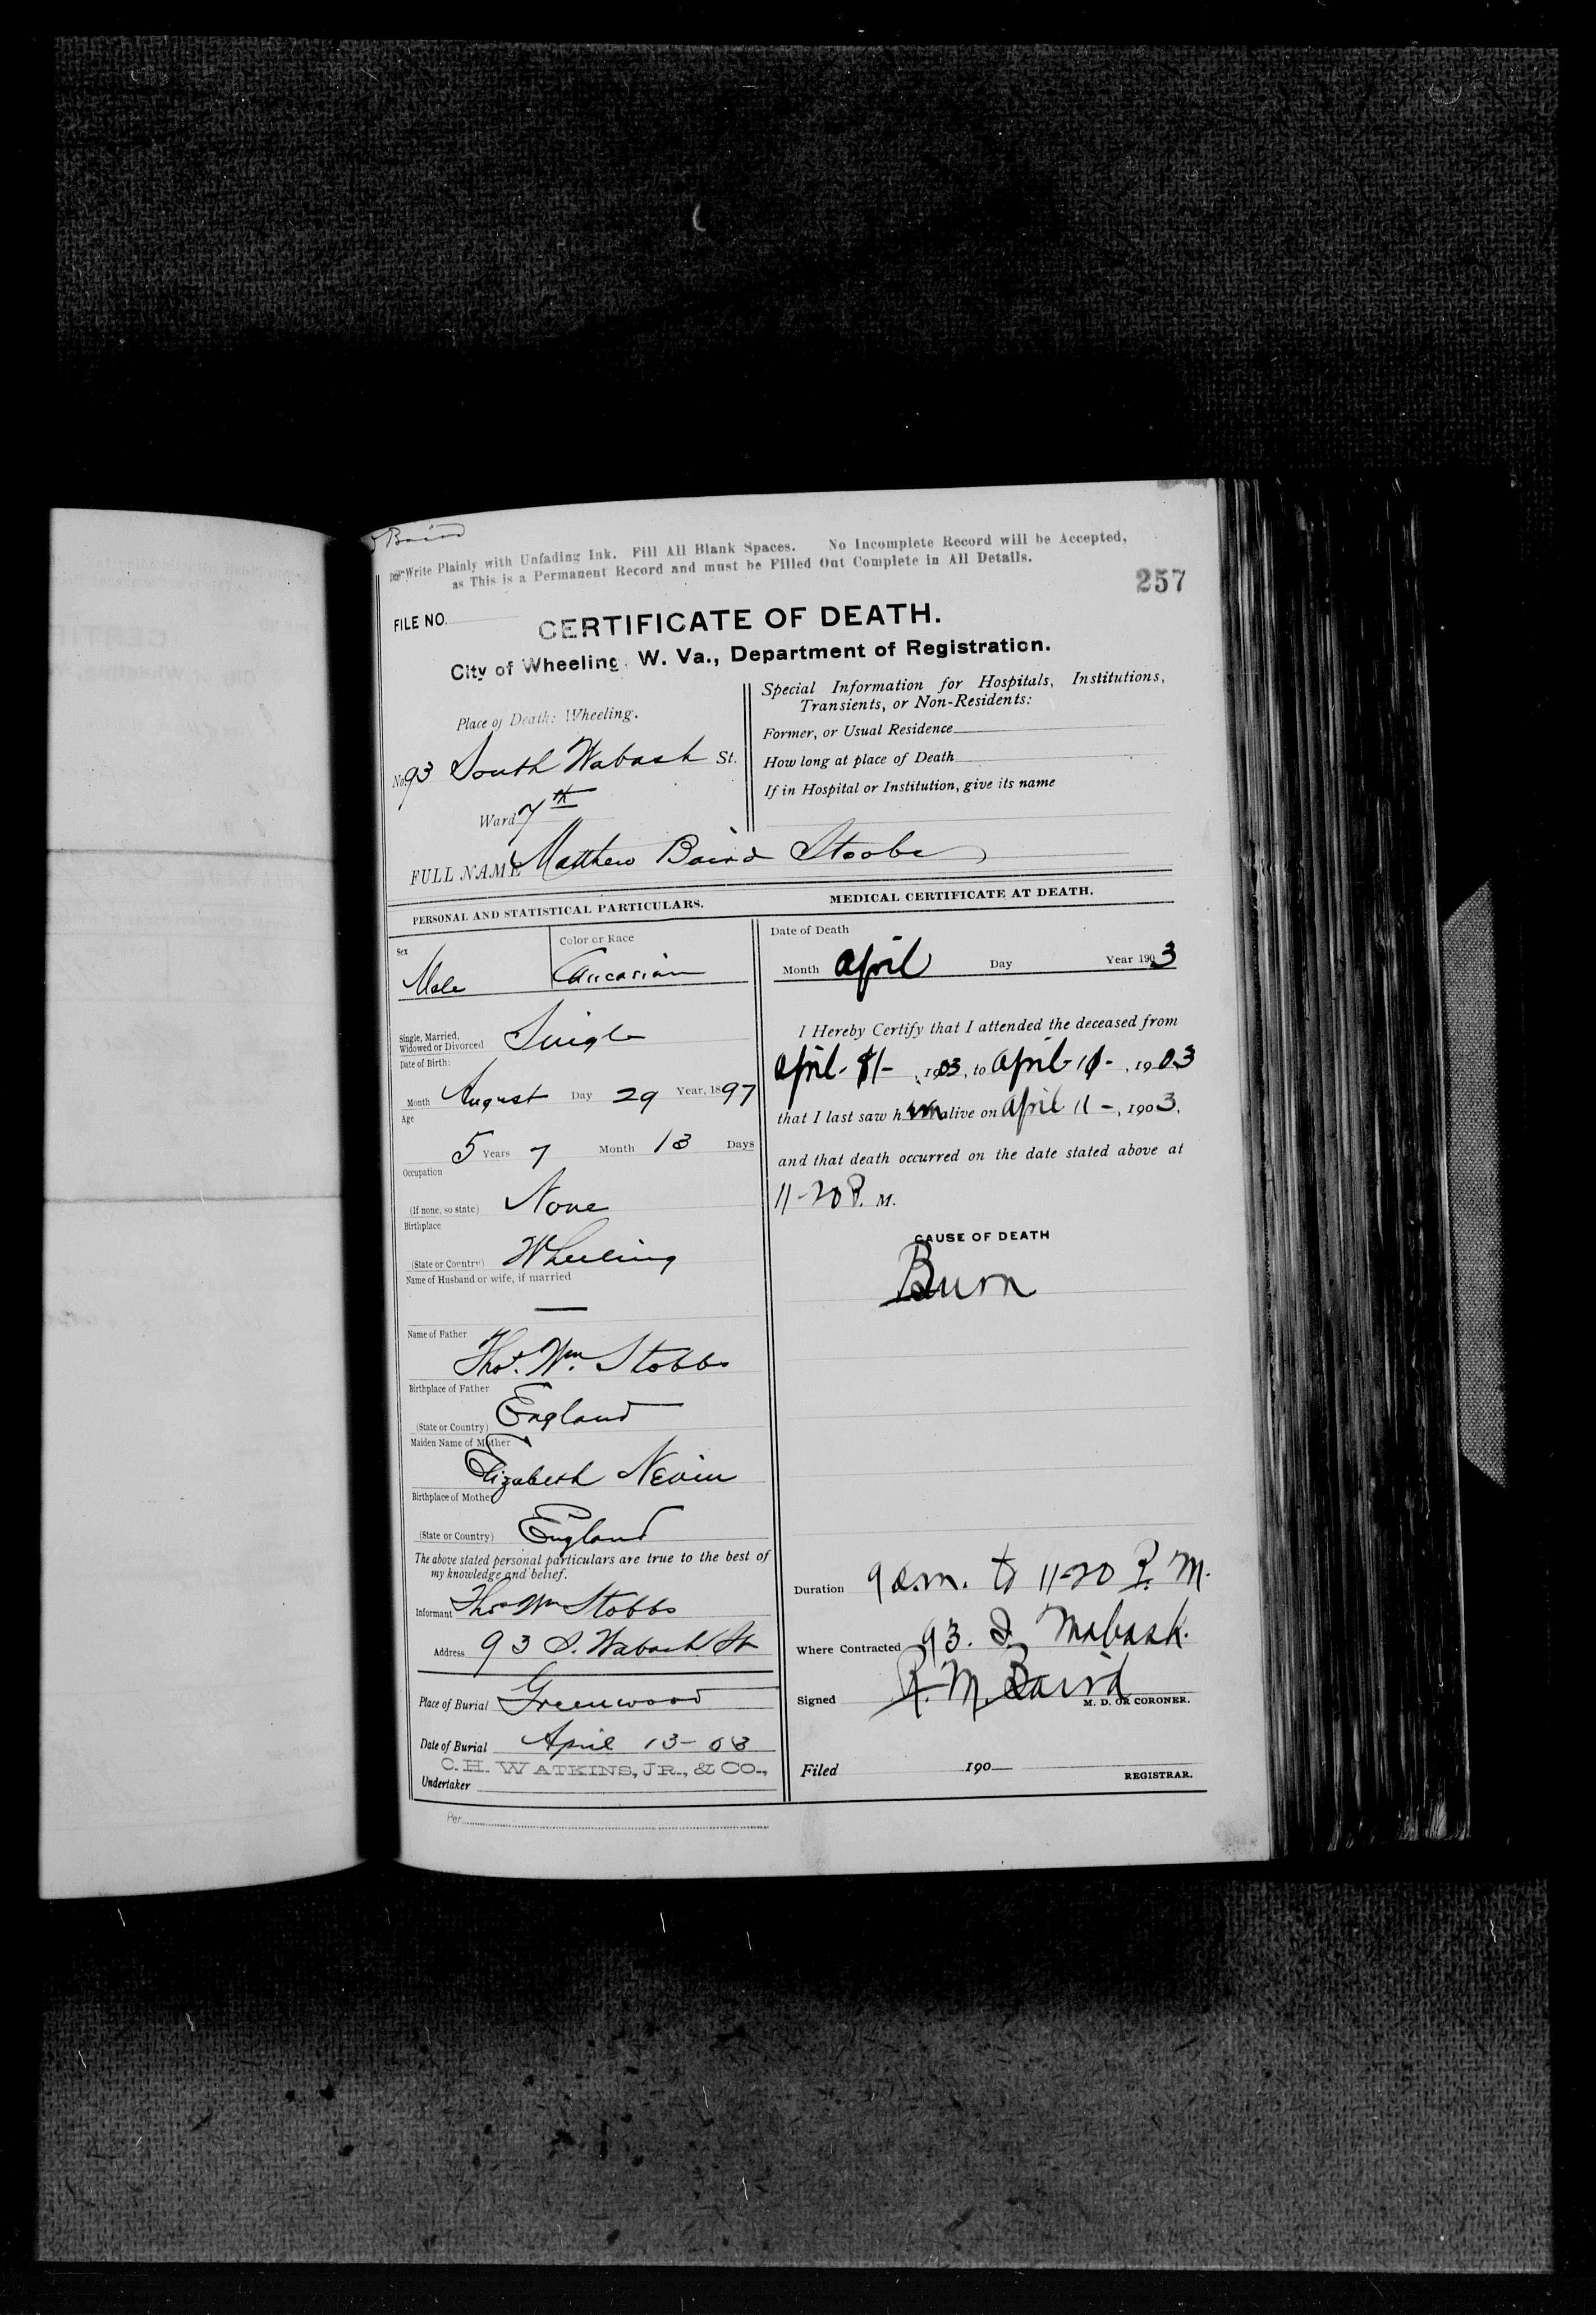 Baird
Write Plainly with Unfading Ink. Fill All Blank Spaces. No Incomplete Record will be Accepted,
as This is a Permanent Record and must be Filled Out Complete in All Details.
257
FILE NO.
CERTIFICATE OF DEATH.
City of Wheeling, W. Va., Department of Registration.
Place of Death: Wheeling.
No. 93 South Wabash St.
Ward 7th
Special Information for Hospitals, Institutions,
Transients, or Non-Residents:
Former, or Usual Residence
How long at place of Death
If in Hospital or Institution, give its name
FULL NAME Matthew Baird Stobbs
PERSONAL AND STATISTICAL PARTICULARS.
Sex
Male
Color or Race
Caucasian
Single, Married,
Widowed or Divorced Single
Date of Birth:
Month August Day 29 Year, 1897
Age
5 Years 7 Month 13 Days
Occupation
(If none, so state) None
Birthplace
(State or Country) Wheeling
Name of Husband or wife, if married
—
Name of Father
Thos. Wm. Stobbs
Birthplace of Father
(State or Country) England
Maiden Name of Mother
Elizabeth Nevin
Birthplace of Mother
(State or Country) England
The above stated personal particulars are true to the best of
my knowledge and belief.
Informant Thos Wm Stobbs
Address 93 S. Wabash St
Place of Burial Greenwood
Date of Burial April 13-03
C. H. WATKINS, JR., & CO.,
Undertaker
Per
MEDICAL CERTIFICATE AT DEATH.
Date of Death
Month April Day Year 1903
I Hereby Certify that I attended the deceased from
April , 1903, to April , 1903
that I last saw him alive on April 11-, 1903,
and that death occurred on the date stated above at
11-20 P. M.
CAUSE OF DEATH
Burn
Duration 9 a.m. to 11-20 P. M.
Where Contracted 93. S. Wabash.
Signed R. M. Baird
M. D. OR CORONER.
Filed 190
REGISTRAR.